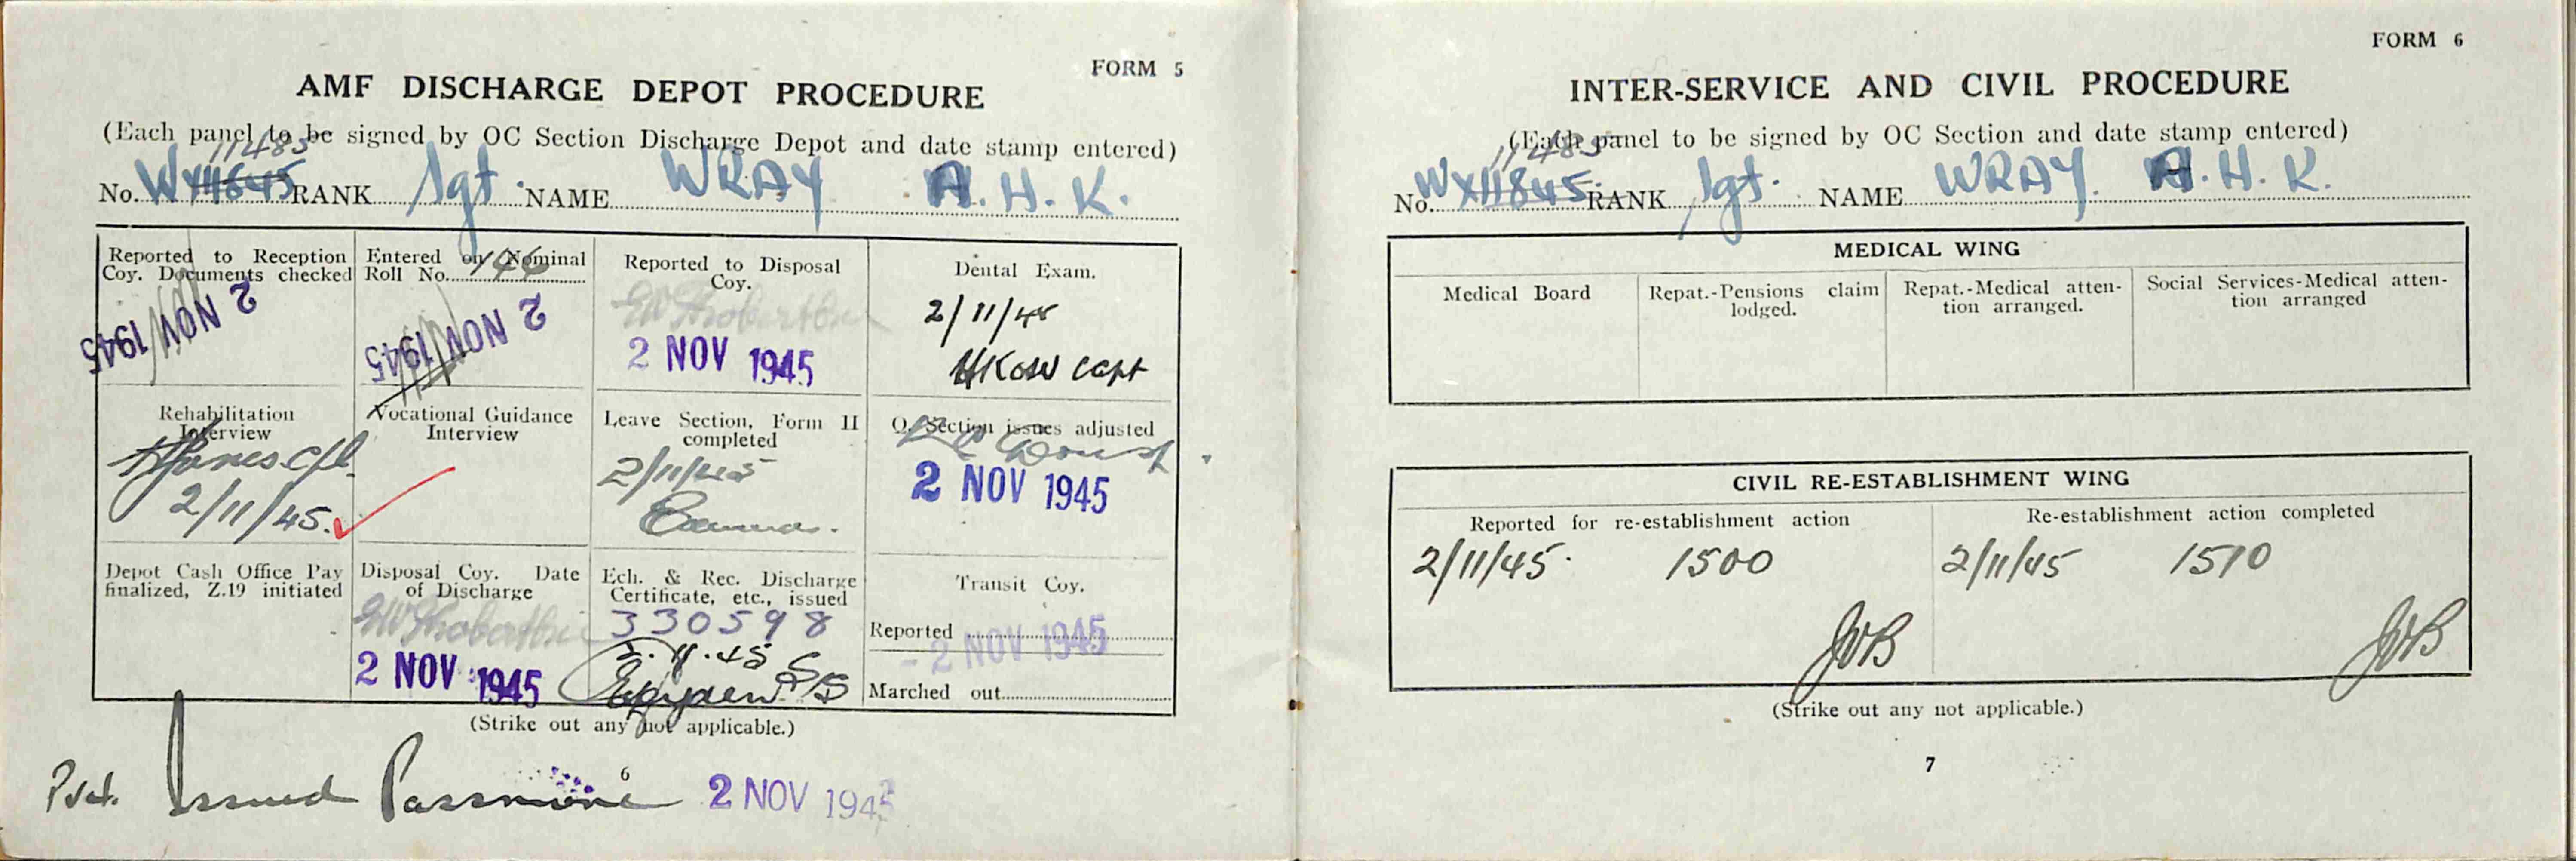 FORM 5
AMF DISCHARGE DEPOT PROCEDURE
(Each panel to be signed by OC Section Discharge Depot and date stamp entered)
11483
No. WX11845 RANK Sgt. NAME WRAY A. H. K.
Reported to Reception
Coy. Documents checked
2 NOV 1945
Entered on Nominal
Roll No. 146
2 NOV 1945
Reported to Disposal
Coy.
2 NOV 1945
Dental Exam.
2/11/45
Capt
Rehabilitation
Interview
Cpl.
2/11/45.
Vocational Guidance
Interview
Leave Section, Form II
completed
2/11/45
Q. Section issues adjusted
2 NOV 1945
Depot Cash Office Pay
finalized, Z.19 initiated
Disposal Coy. Date
of Discharge
2 NOV 1945
Ech. & Rec. Discharge
Certificate, etc., issued
330598
2.11.45
Transit Coy.
Reported
- 2 NOV 1945
Marched out
(Strike out any not applicable.)
6
Issued 2 NOV 1945
FORM 6
INTER-SERVICE AND CIVIL PROCEDURE
(Each panel to be signed by OC Section and date stamp entered)
11483
No. WX11845. RANK Sgt. NAME WRAY. A. H. K.
MEDICAL WING
Medical Board
Repat.-Pensions claim
lodged.
Repat.-Medical atten-
tion arranged.
Social Services-Medical atten-
tion arranged
CIVIL RE-ESTABLISHMENT WING
Reported for re-establishment action
2/11/45. 1500
JWB
Re-establishment action completed
2/11/45 1510
JWB
(Strike out any not applicable.)
7